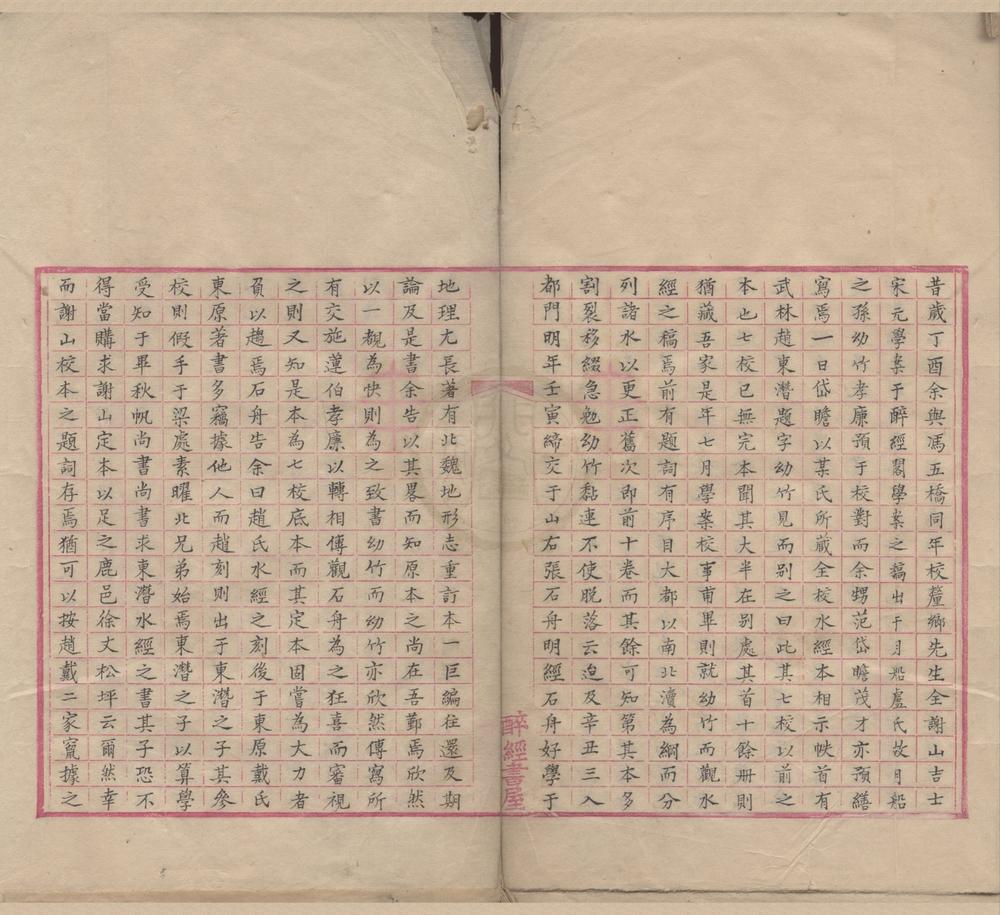 昔歲丁酉余與馮五橋同年校釐鄉先生全謝山吉士
宋元學案于醉經閣學案之稿出于月船盧氏故月船
之孫幼竹孝廉預于校對而余甥范岱瞻茂才亦預繕
寫焉一日岱瞻以某氏所藏全校水經本相示帙首有
武林趙東潛題字幼竹見而別之曰此其七校以前之
本也七校已無完本聞其大半在別處其首十餘冊則
猶藏吾家是年七月學案校事甫畢則就幼竹而觀水
經之稿焉前有題詞有序目大都以南北瀆為綱而分
列諸水以更正舊次即前十卷而其餘可知第其本多
割裂移綴急勉幼竹黏連不使脫落云迫及辛丑三入
都門明年壬寅締交于山右張石舟明經石舟好學于
醉經書屋
地理尤長著有北魏地形志重訂本一巨編往還及期
論及是書余告以其畧而知原本之尚在吾鄞焉欣然
以一覩為快則為之致書幼竹而幼竹亦欣然傳寫所
有交施蘧伯孝廉以轉相傳觀石舟為之狂喜而審視
之則又知是本為七校底本而其定本固嘗為大力者
負以趨焉石舟告余曰趙氏水經之刻後于東原戴氏
東原著書多竊據他人而趙刻則出于東潛之子其參
校則假手于梁處素曜北兄弟始焉東潛之子以算學
受知于畢秋帆尚書尚書求東潛水經之書其子恐不
得當購求謝山定本以足之鹿邑徐丈松坪云爾然幸
而謝山校本之題詞存焉猶可以按趙戴二家竄據之